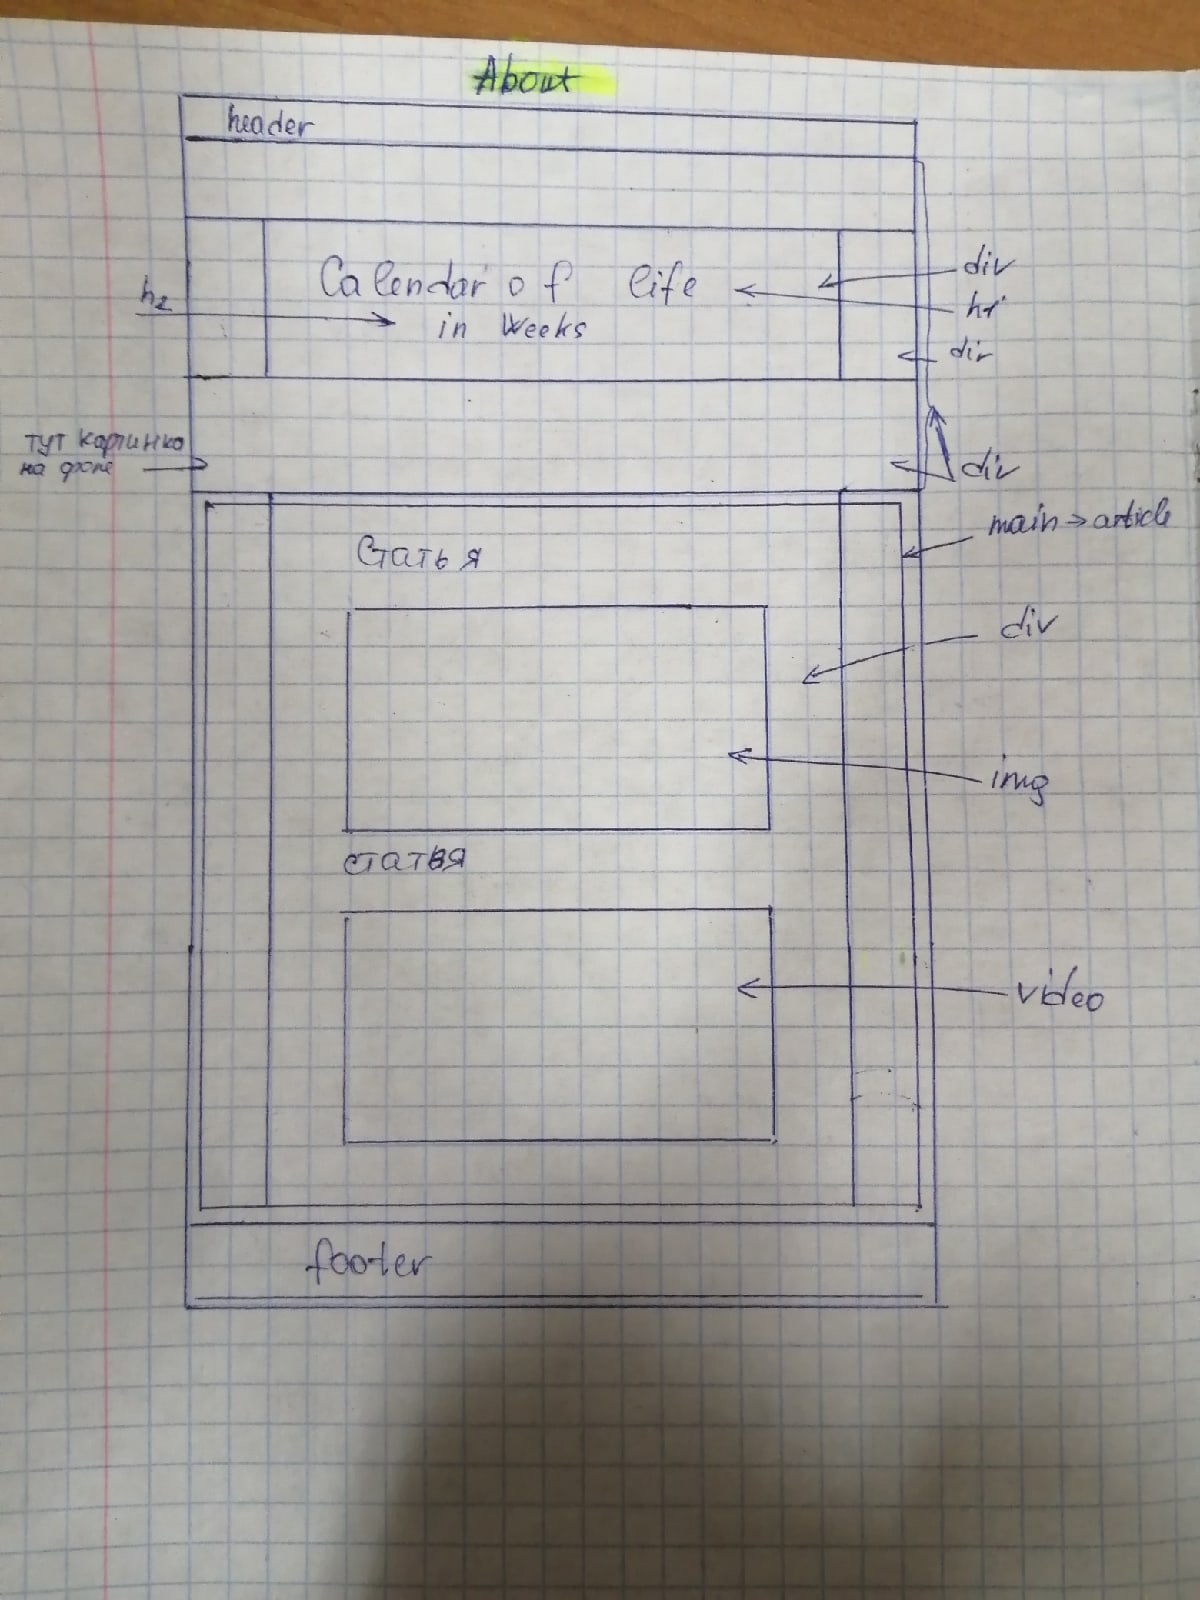 About
header
Calendar of life
in Weeks
h2
div
h1
div
тут картинка
на фоне
div
main → article
Статья
div
img
статья
video
footer